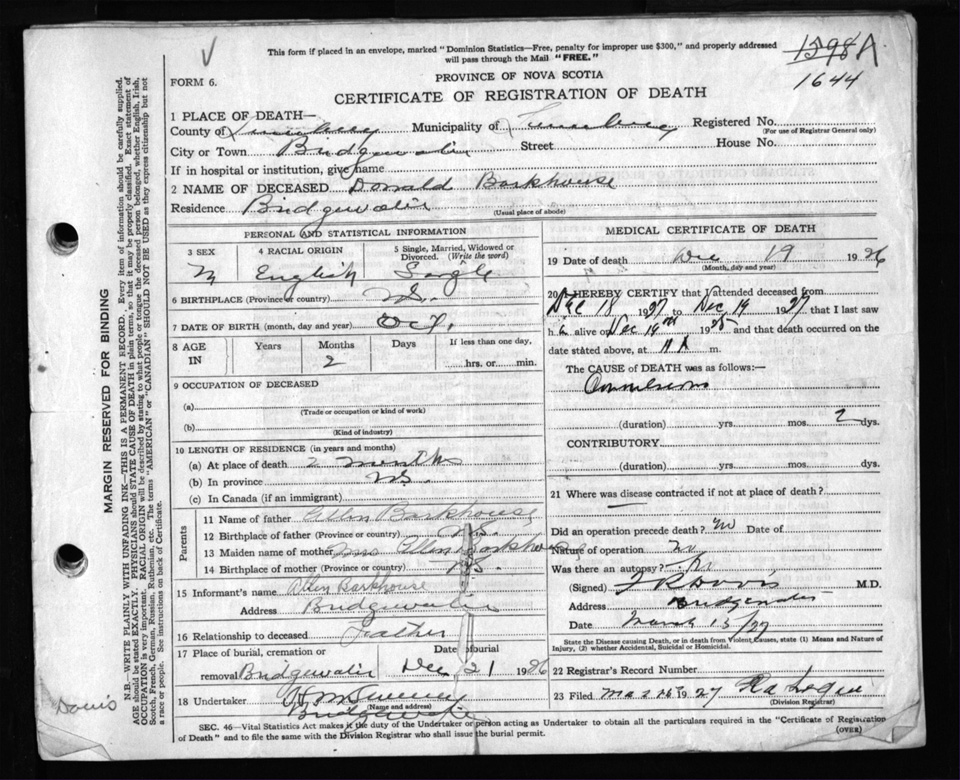 This form if placed in an envelope, marked "Dominion Statistics—Free, penalty for improper use $300," and properly addressed
will pass through the Mail "FREE."
1598 A
1644
FORM 6.
PROVINCE OF NOVA SCOTIA
CERTIFICATE OF REGISTRATION OF DEATH
1 PLACE OF DEATH—
County of Lunenburg Municipality of Lunenburg Registered No.
(For use of Registrar General only)
City or Town Bridgewater Street House No.
If in hospital or institution, give name
2 NAME OF DECEASED Donald Barkhouse
Residence Bridgewater
(Usual place of abode)
PERSONAL and STATISTICAL INFORMATION
3 SEX 4 RACIAL ORIGIN 5 Single, Married, Widowed or Divorced. (Write the word)
M English Single
6 BIRTHPLACE (Province or country) N.S.
7 DATE OF BIRTH (month, day and year) Oct.
8 AGE IN Years Months Days If less than one day,
2 hrs. or min.
9 OCCUPATION OF DECEASED
(a)
(Trade or occupation or kind of work)
(b)
(Kind of industry)
10 LENGTH OF RESIDENCE (in years and months)
(a) At place of death 2 months
(b) In province N.S.
(c) In Canada (if an immigrant)
Parents
11 Name of father Allen Barkhouse
12 Birthplace of father (Province or country) N.S.
13 Maiden name of mother Mrs Allen Barkhouse
14 Birthplace of mother (Province or country) N.S.
15 Informant's name Allen Barkhouse
Address Bridgewater
16 Relationship to deceased Father
17 Place of burial, cremation or Date of burial
removal Bridgewater Dec 21 1926
18 Undertaker
(Name and address)
Bridgewater
MEDICAL CERTIFICATE OF DEATH
19 Date of death Dec 19 1926
(Month, day and year)
20 I HEREBY CERTIFY that I attended deceased from
Dec 18 1927 to Dec 19 1927 that I last saw
h alive on Dec 19th 19 and that death occurred on
date stated above, at m.
The CAUSE OF DEATH was as follows:—
Convulsions
(duration) yrs. mos. 2 dys.
CONTRIBUTORY
(duration) yrs. mos. dys.
21 Where was disease contracted if not at place of death?
Did an operation precede death? no Date of
Nature of operation no
Was there an autopsy? no
(Signed) F R Davis M.D.
Address Bridgewater
Date March 15/27
State the Disease causing Death, or in death from Violent Causes, state (1) Means and Nature of
Injury, (2) whether Accidental, Suicidal or Homicidal.
22 Registrar's Record Number
23 Filed 1927
(Division Registrar)
SEC. 46—Vital Statistics Act makes it the duty of the Undertaker or person acting as Undertaker to obtain all the particulars required in the "Certificate of Registration
of Death" and to file the same with the Division Registrar who shall issue the burial permit.
(OVER)
MARGIN RESERVED FOR BINDING
N.B.—WRITE PLAINLY WITH UNFADING INK—THIS IS A PERMANENT RECORD. Every item of information should be carefully supplied.
AGE should be stated EXACTLY. PHYSICIANS should STATE CAUSE OF DEATH in plain terms, so that it may be properly classified. Exact statement of
OCCUPATION is very important. RACIAL ORIGIN will be described by stating to what people or tongue the deceased person belonged, whether English, Irish,
Scotch, French, German, Russian, Ruthenian, etc. The terms "AMERICAN" or "CANADIAN" SHOULD NOT BE USED as they express citizenship but not
a race or people. See instructions on back of Certificate.
Davis